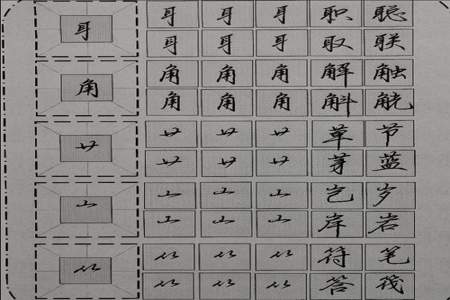 耳
耳 耳 耳 职 聪
耳 耳 耳 取 联
角
角 角 角 解 触
角 角 角 斛 觥
艹
艹 艹 艹 草 节
艹 艹 艹 芽 蓝
山
山 山 山 岂 岁
山 山 山 岸 岩
⺮
⺮ ⺮ ⺮ 符 笔
⺮ ⺮ ⺮ 答 筏